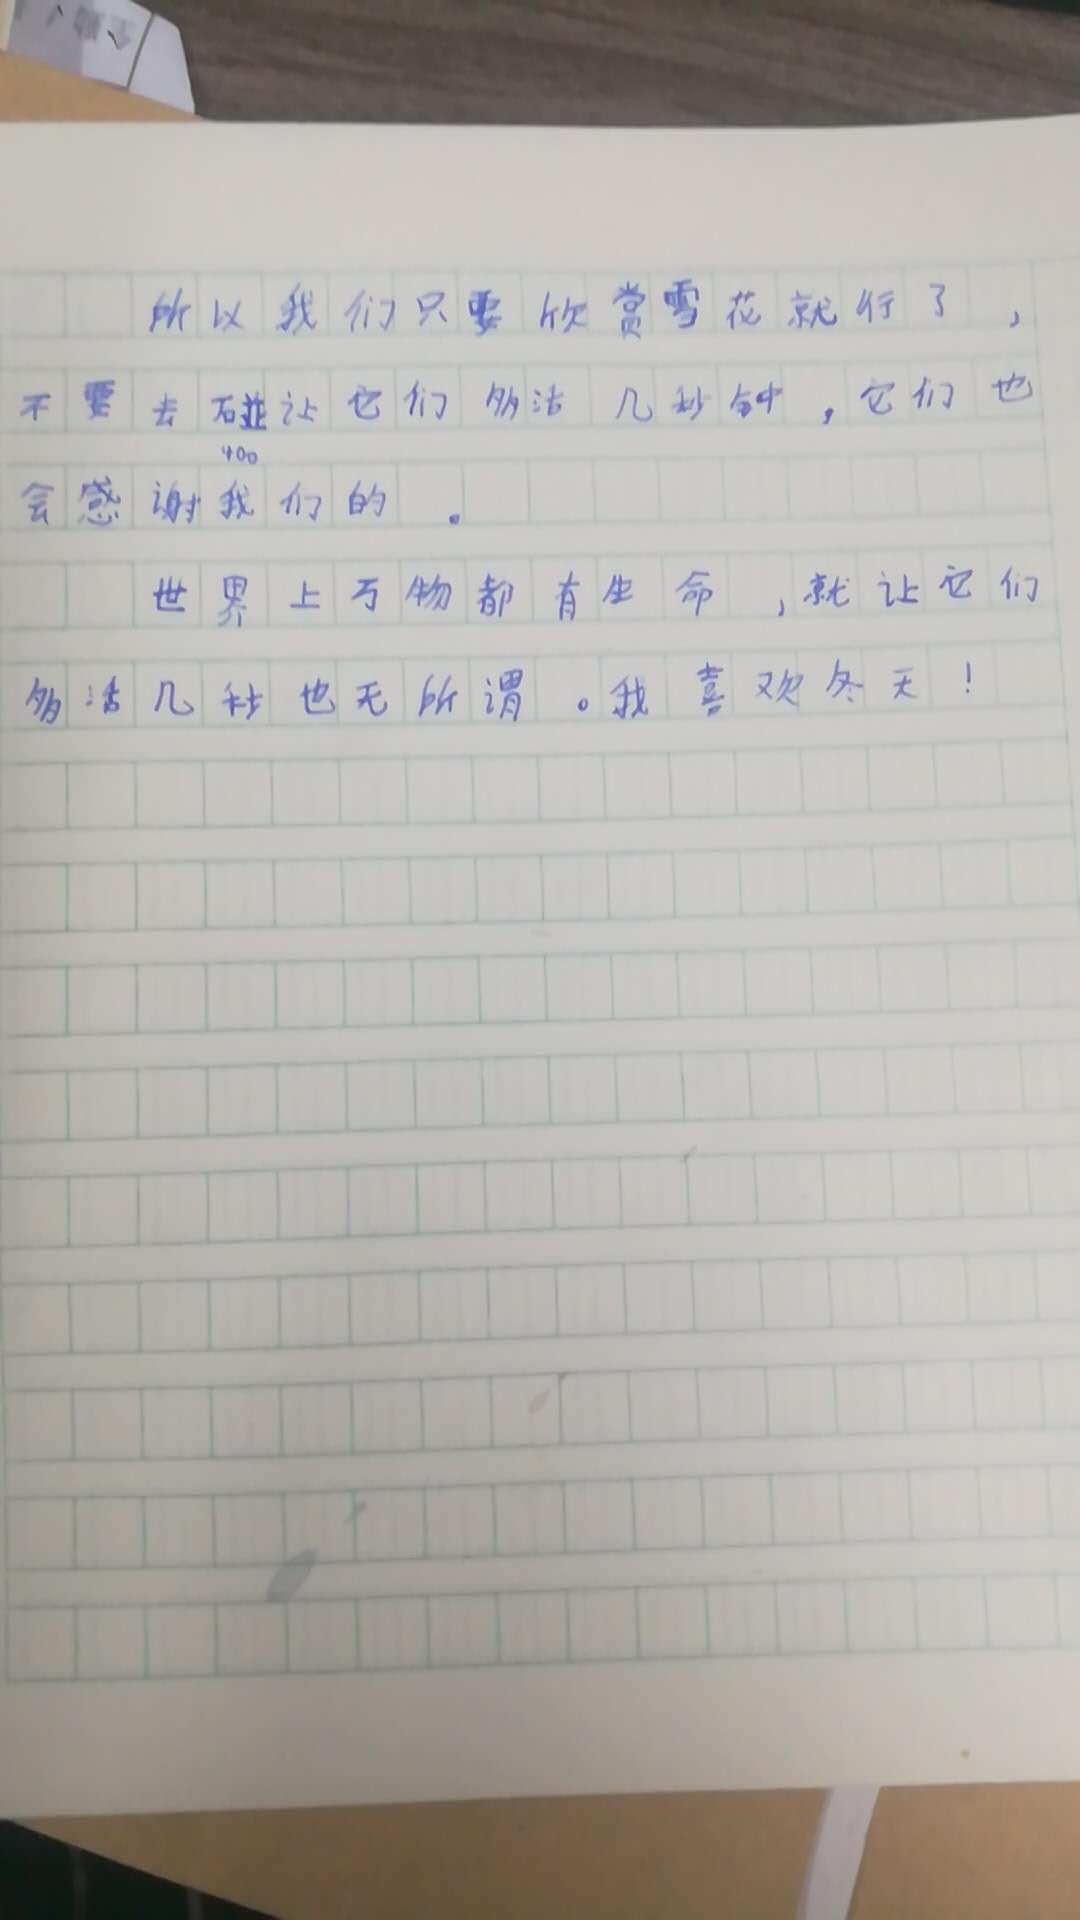 所以我们只要欣赏雪花就行了,
不要去碰让它们多活几秒钟,它们也
400
会感谢我们的。
世界上万物都有生命,就让它们
多活几秒也无所谓。我喜欢冬天!